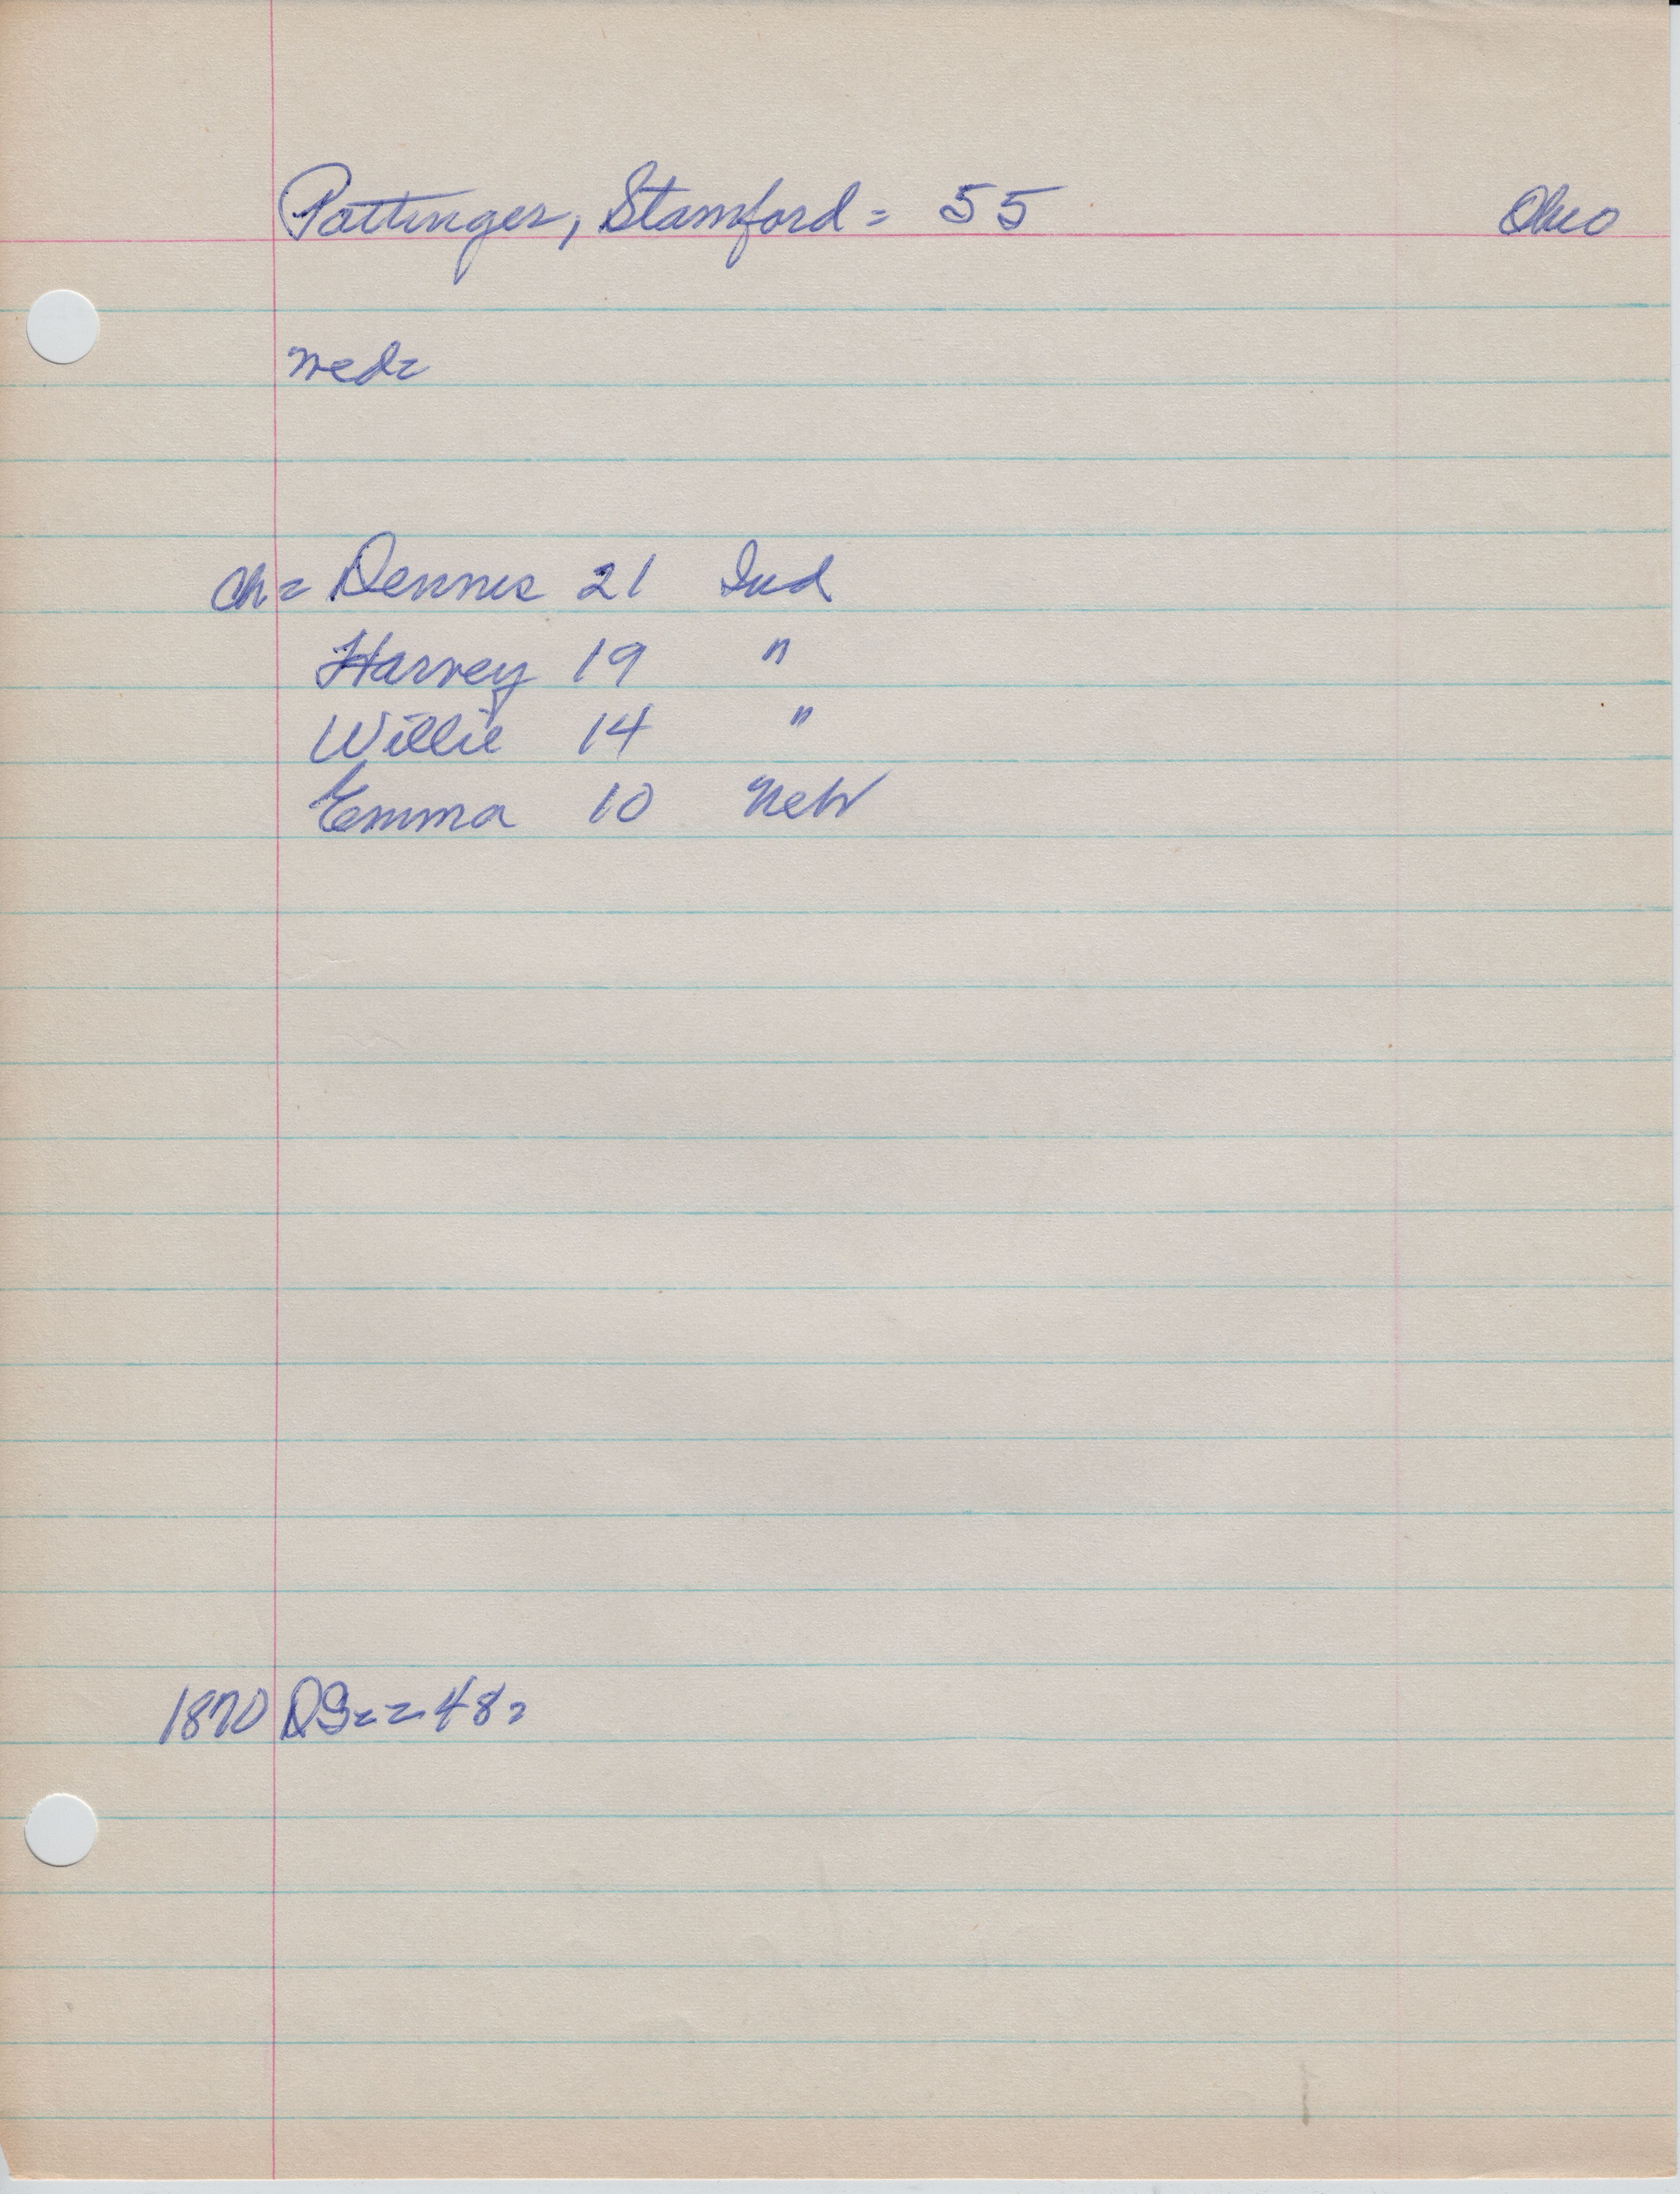 Pottinger, Stamford = 55 Ohio
wed=
ch = Dennis 21 Ind
Harvey 19 "
Willie 14 "
Emma 10 Neb
1870 DS= = 48=